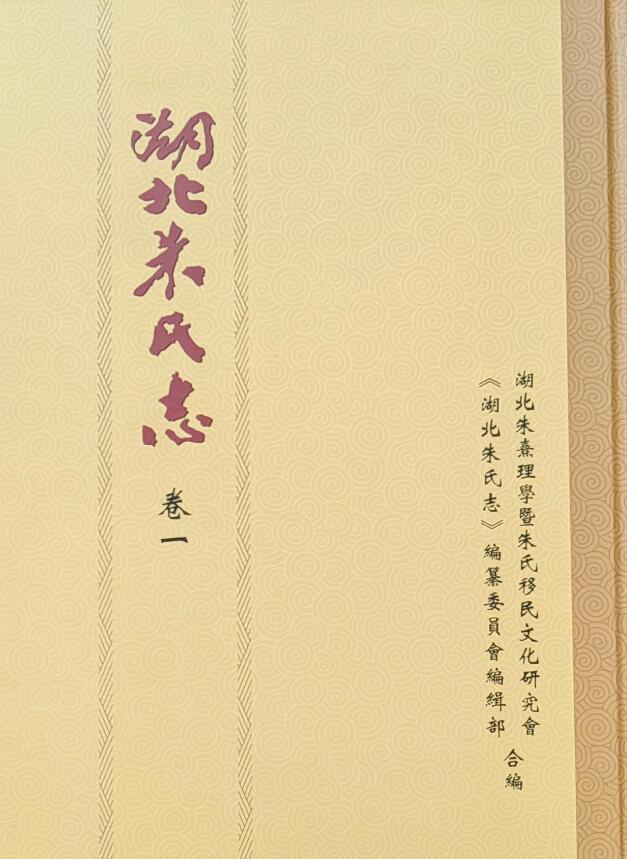 湖北朱氏志
卷一
湖北朱熹理學暨朱氏移民文化研究會
《湖北朱氏志》編纂委員會編緝部
合編